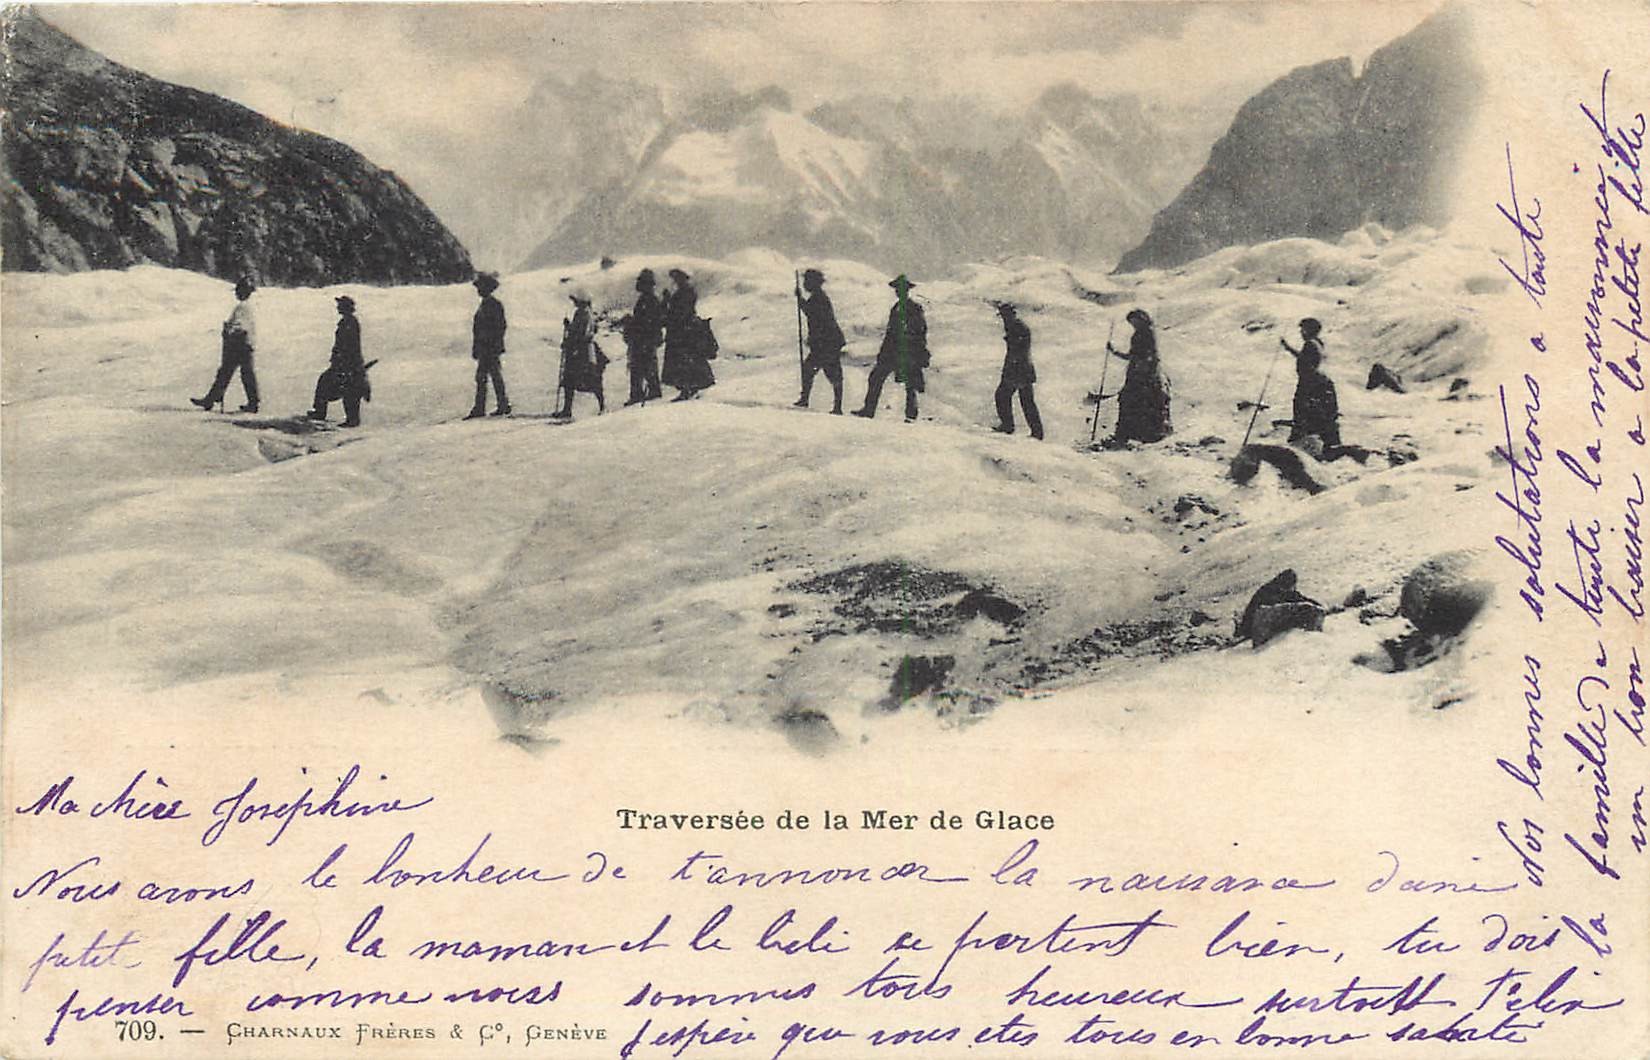 Traversée de la Mer de Glace
Ma chère Joséphine
Nous avons le bonheur de t'annoncer la naissance d'une
petite fille, la maman et le bébé se portent bien, tu dois
penser comme nous sommes tous heureux surtout Félix
j'espère que vous etes tous en bonne santé
709. — CHARNAUX FRÈRES & Cº, GENÈVE
Nos bonnes salutations a toute
la famille a tante la maman et
un bon baiser a la petite fille